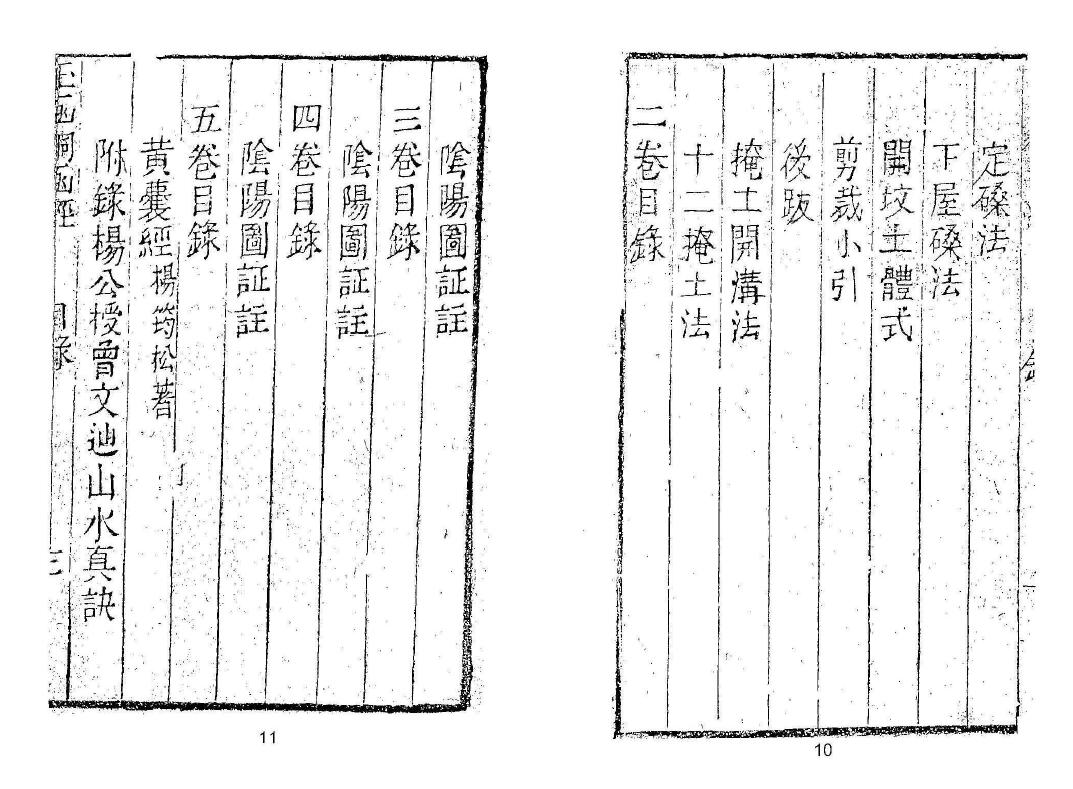 定磉法
下屋磉法
開坟土體式
剪裁小引
後跋
掩土開溝法
十二掩土法
二卷目錄
10
陰陽圖証註
三卷目錄
陰陽圖証註
四卷目錄
陰陽圖証註
五卷目錄
黃囊經楊筠松著
附錄楊公授曾文辿山水真訣
目錄
11